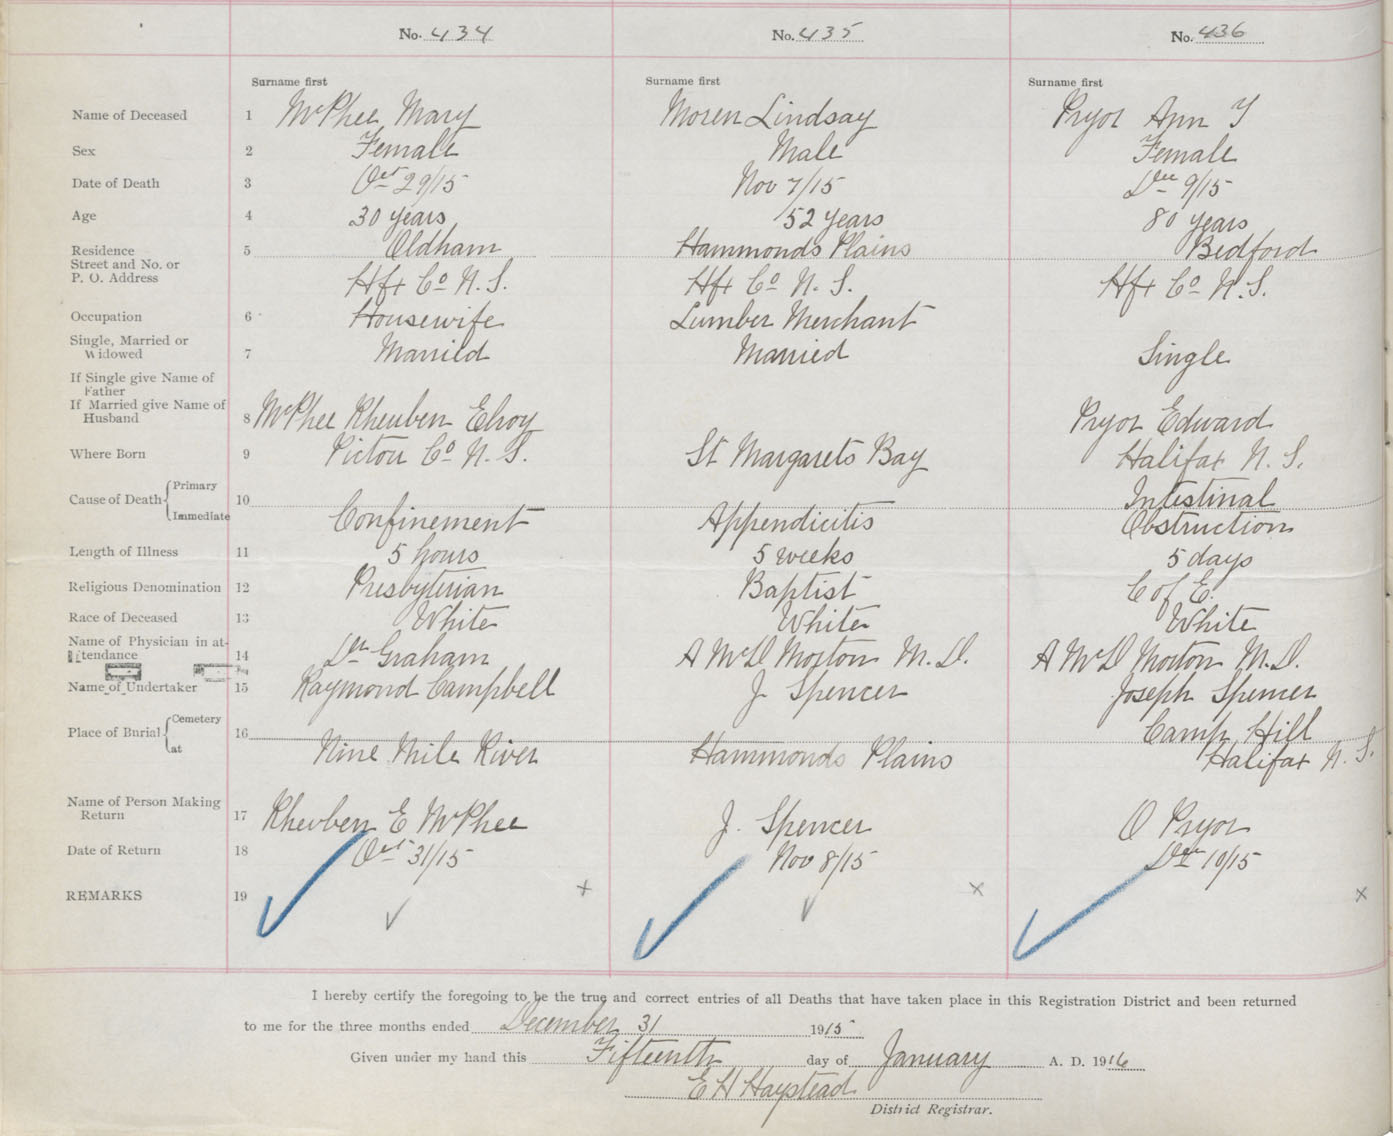 No. 434 No. 435 No. 436
Surname first Surname first Surname first
Name of Deceased 1 McPhee Mary Moren Lindsay Pryor Ann Y
Sex 2 Female Male Female
Date of Death 3 Oct 29/15 Nov 7/15 Dec 9/15
Age 4 30 years 52 years 80 years
Residence 5 Oldham Hammonds Plains Bedford
Street and No. or
P. O. Address Hfx Co N.S. Hfx Co N.S. Hfx Co N.S.
Occupation 6 Housewife Lumber Merchant
Single, Married or
Widowed 7 Married Married Single
If Single give Name of
Father
If Married give Name of
Husband 8 McPhee Rheuben Elroy Pryor Edward
Where Born 9 Pictou Co N.S. St Margarets Bay Halifax N.S.
Cause of Death { Primary Intestinal
10
Immediate Confinement Appendicitis Obstruction
Length of Illness 11 5 hours 5 weeks 5 days
Religious Denomination 12 Presbyterian Baptist C of E.
Race of Deceased 13 White White White
Name of Physician in at-
tendance 14 Dr Graham A McD Morton M.D. A McD Morton M.D.
Name of Undertaker 15 Raymond Campbell J Spencer Joseph Spencer
Place of Burial { Cemetery 16 Camp Hill
at Nine Mile River Hammonds Plains Halifax N.S.
Name of Person Making
Return 17 Rheuben E McPhee J. Spencer O Pryor
Date of Return 18 Oct 31/15 Nov 8/15 Dec 10/15
REMARKS 19 x x x
I hereby certify the foregoing to be the true and correct entries of all Deaths that have taken place in this Registration District and been returned
to me for the three months ended December 31 1915
Given under my hand this Fifteenth day of January A. D. 1916
E H Haystead
District Registrar.